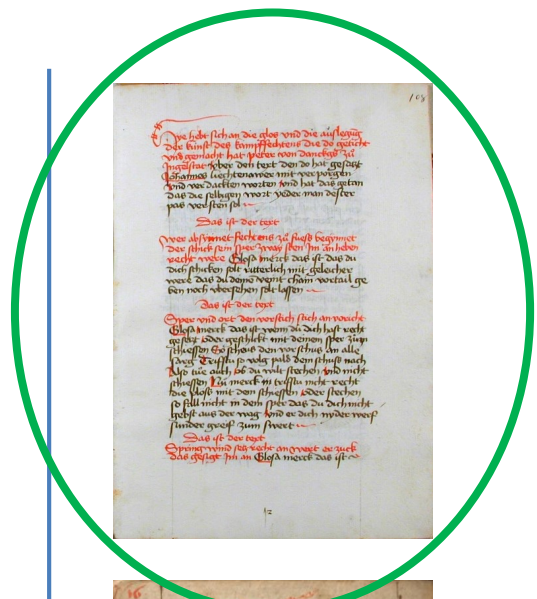 108
Hye hebt sich an die glos vnd die auslegung
der kunst des kampffechtens die do geticht
vnd gemacht hat peter von danckgs zu
Ingelstat vber den text den do hat gesatzt
Johannes liechtenawer mit verporgen
vnd verdackten worten vnd hat das getan
das die selbigen wort yeder man dester
pas versten sol
Das ist der text
Wer absynnet fechtens zu fuess begynnet
der schick sein sper zway sten Im an heben
recht were Glosa merck das ist das du
dich schicken solt ritterlich mit geleicher
were das du deine veint chain vortail ge
ben noch vbersehen solt lassen
Das ist der text
Sper vnd ort den vorstich stich an voricht
Glosa merck das ist wenn du dich hast recht
gesetzt oder geschickt mit deinem sper zum
schiessen So scheus den vorschus an alle
sarg Triffstu so volg pald dem schuss nach
Also tue auch ob du wilt stechen vnd nicht
schiessen Nu merck in trifstu nicht recht
die plos mit dem schiessen oder stechen
so fall nicht in dem sper das du dich nicht
gebst aus der wag vnd er dich nyder werf
sunder greif zum swert
Das ist der text
Spring wind secz recht an wert er zuck
das gesigt Im an Glosa merck das ist